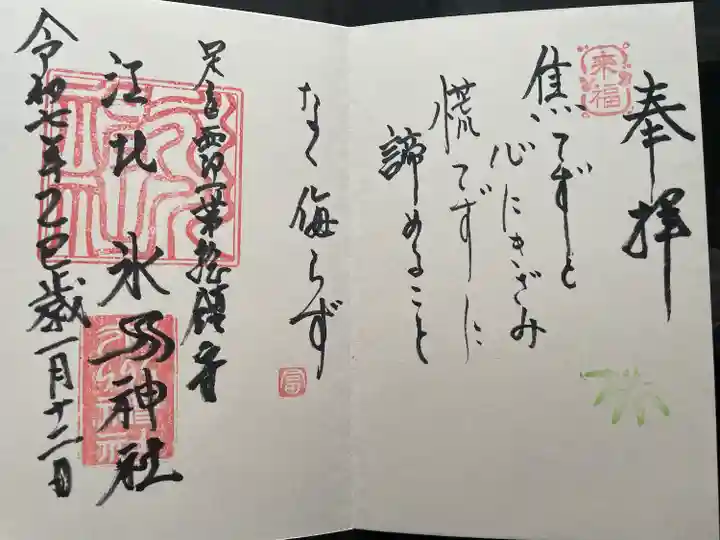 奉拝
来福
焦らずと
心にきざみ
慌てずに
諦めること
なく侮らず
足立郡
鎮守
江北氷川神社
令和七年乙巳歳一月十二日